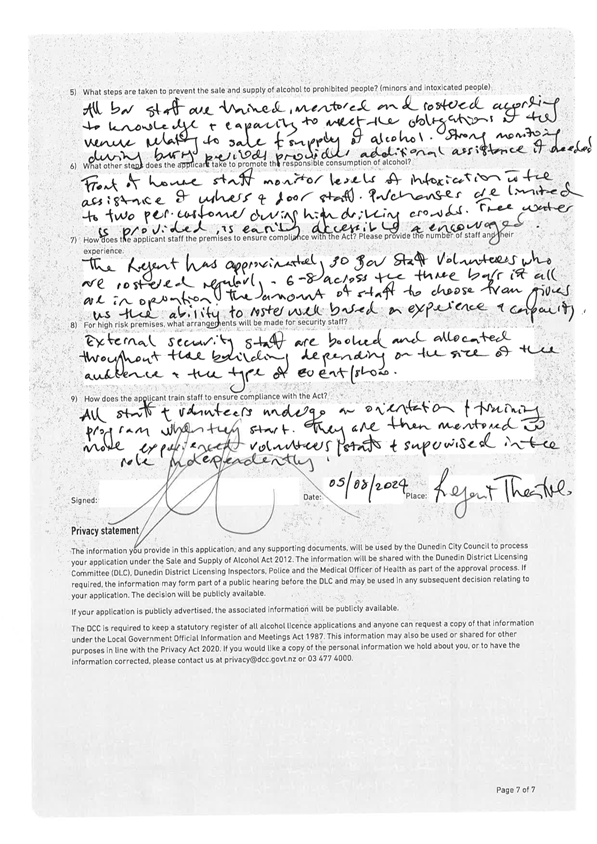 5) What steps are taken to prevent the sale and supply of alcohol to prohibited people? (minors and intoxicated people)
All bar staff are trained, mentored and rostered according
to knowledge + capacity to meet the obligations of the
venue relating to sale + supply of alcohol. Strong monitoring
during busy periods provides additional assistance if needed
6) What other steps does the applicant take to promote the responsible consumption of alcohol?
Front of house staff monitor levels of intoxication with the
assistance of ushers + door staff. Purchases are limited
to two per customer during high drinking crowds. Free water
is provided, is easily accessible & encouraged.
7) How does the applicant staff the premises to ensure compliance with the Act? Please provide the number of staff and their
experience.
The Regent has approximately 30 Bar Staff Volunteers who
are rostered regularly. 6-8 across the three bars if all
are in operation. The amount of staff to choose from gives
us the ability to roster well based on experience + capacity.
8) For high risk premises, what arrangements will be made for security staff?
External security staff are booked and allocated
throughout the building depending on the size of the
audience + the type of event/show.
9) How does the applicant train staff to ensure compliance with the Act?
All staff + volunteers undergo an orientation + training
program when they start. They are then mentored
more experienced volunteers/staff + supervised in the
role independently.
Signed:
Date: 05/08/2024 Place: Regent Theatre.
Privacy statement
The information you provide in this application, and any supporting documents, will be used by the Dunedin City Council to process
your application under the Sale and Supply of Alcohol Act 2012. The information will be shared with the Dunedin District Licensing
Committee (DLC), Dunedin District Licensing Inspectors, Police and the Medical Officer of Health as part of the approval process. If
required, the information may form part of a public hearing before the DLC and may be used in any subsequent decision relating to
your application. The decision will be publicly available.
If your application is publicly advertised, the associated information will be publicly available.
The DCC is required to keep a statutory register of all alcohol licence applications and anyone can request a copy of that information
under the Local Government Official Information and Meetings Act 1987. This information may also be used or shared for other
purposes in line with the Privacy Act 2020. If you would like a copy of the personal information we hold about you, or to have the
information corrected, please contact us at privacy@dcc.govt.nz or 03 477 4000.
Page 7 of 7